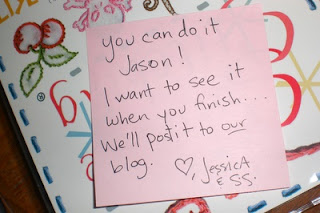 you can do it
Jason!
I want to see it
when you finish...
We'll post it to our
blog.
♡, Jessica
& S.S.